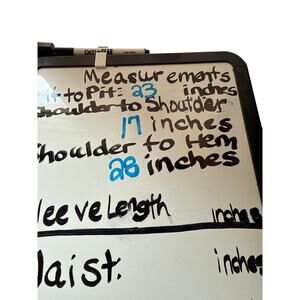 Measurements
Pit to Pit: 23 inches
Shoulder to Shoulder
17 inches
Shoulder to Hem
28 inches
Sleeve Length inches
Waist: inches